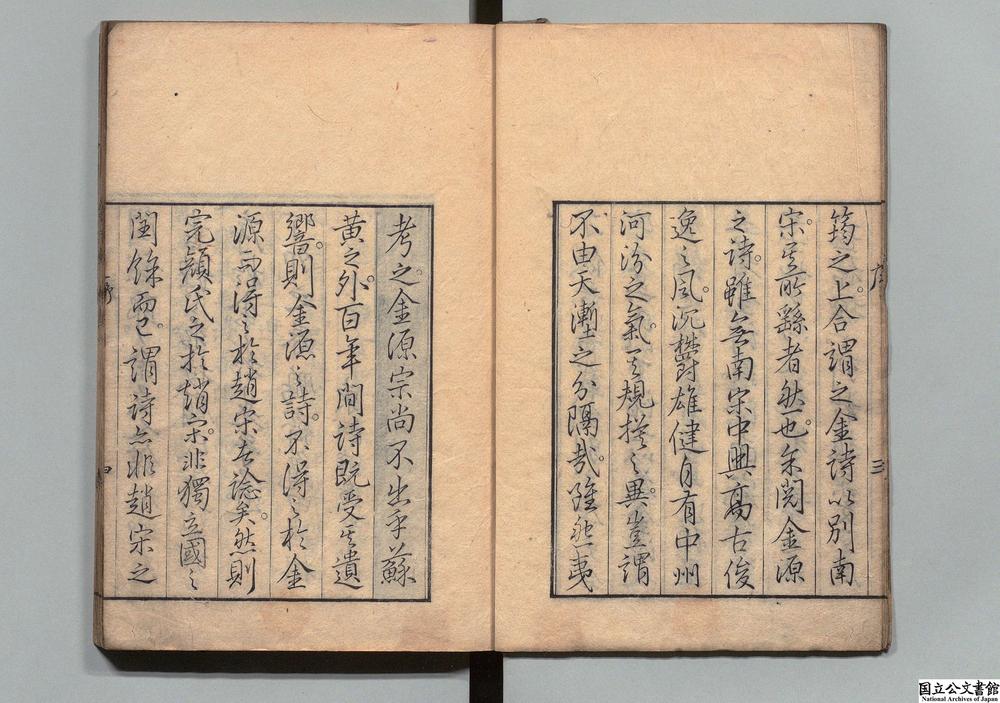 筠之上。合謂之金詩以別南
宋。其所繇者然也。余閱金源
之詩。雖無南宋中興高古俊
逸之風。沉鬱雄健自有中州
河汾之氣。其規撫之異。豈謂
不由天塹之分隔哉。雖然夷
考之。金源宗尚不出乎蘇
黃之外。百年間詩既受其遺
響。則金源之詩。不得之於金
源而得之於趙宋者諗矣。然則
完顏氏之於趙宋。非獨立國之
閏餘而已。謂詩亦非趙宋之
序 三
四
国立公文書館
National Archives of Japan